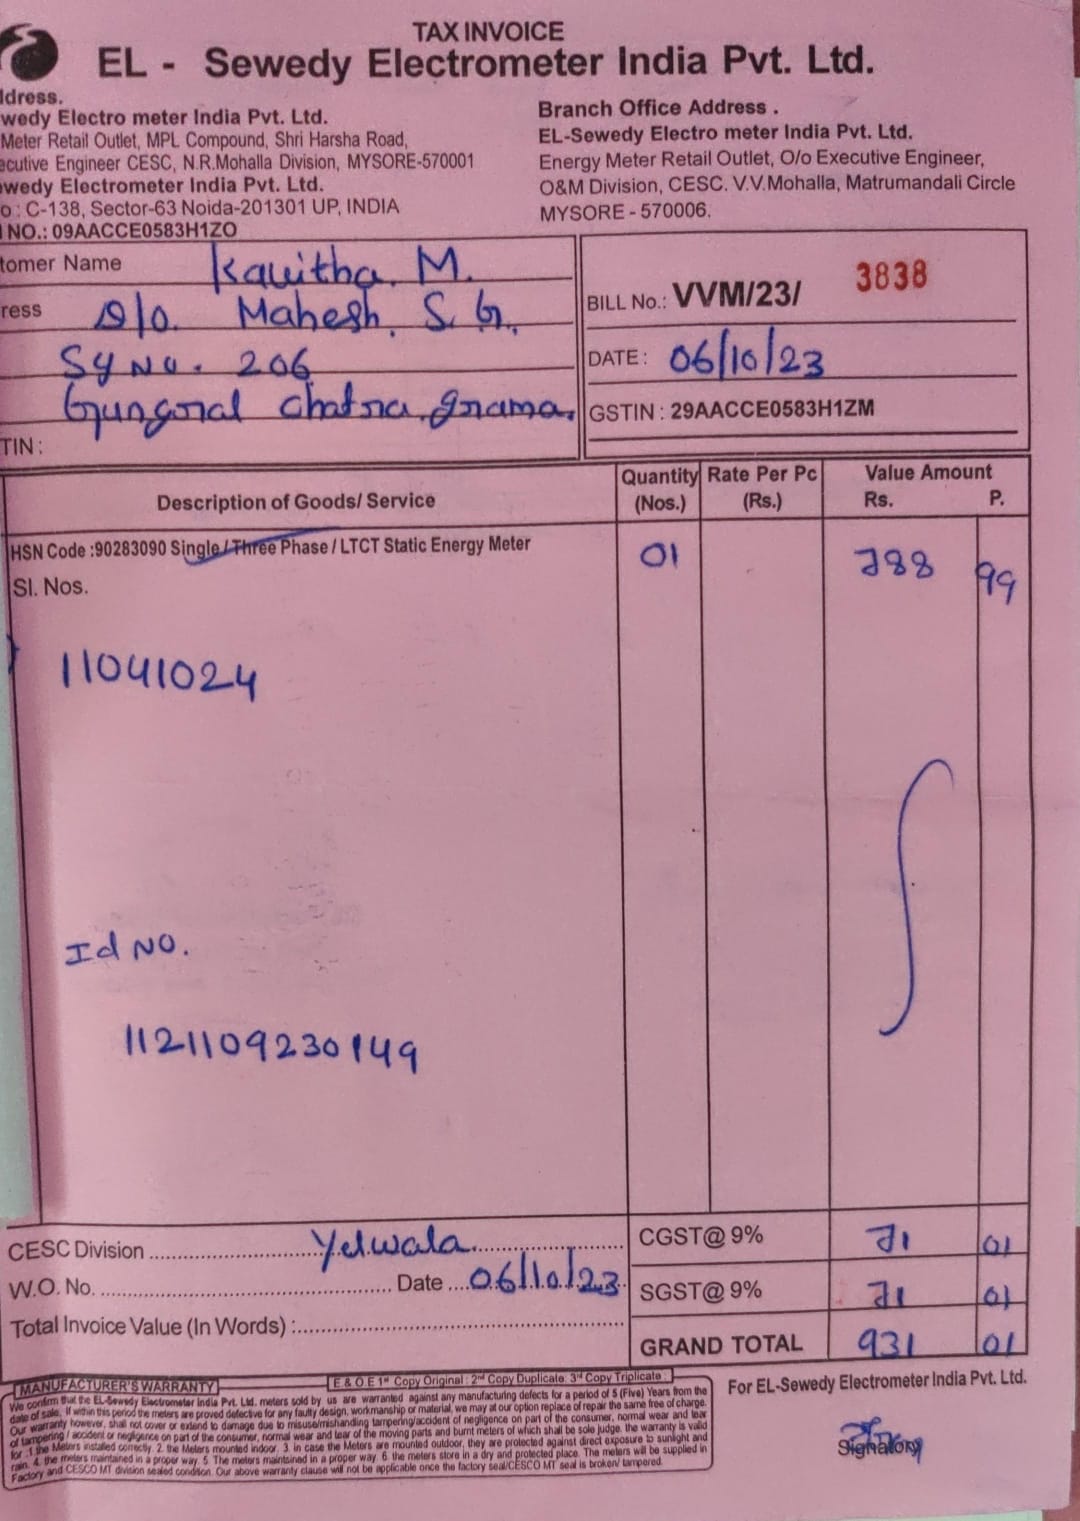 TAX INVOICE
EL - Sewedy Electrometer India Pvt. Ltd.
dress.
wedy Electro meter India Pvt. Ltd.
Meter Retail Outlet, MPL Compound, Shri Harsha Road,
ecutive Engineer CESC, N.R.Mohalla Division, MYSORE-570001
wedy Electrometer India Pvt. Ltd.
o : C-138, Sector-63 Noida-201301 UP, INDIA
NO.: 09AACCE0583H1ZO
Branch Office Address .
EL-Sewedy Electro meter India Pvt. Ltd.
Energy Meter Retail Outlet, O/o Executive Engineer,
O&M Division, CESC. V.V.Mohalla, Matrumandali Circle
MYSORE - 570006.
tomer Name Kavitha. M.
ress D/o. Mahesh. S. G.
Sy No. 206
Gungural Chatra grama.
TIN :
BILL No.: VVM/23/ 3838
DATE : 06/10/23
GSTIN : 29AACCE0583H1ZM
Description of Goods/ Service Quantity (Nos.) Rate Per Pc (Rs.) Value Amount Rs. P.
HSN Code :90283090 Single / Three Phase / LTCT Static Energy Meter 01 788 99
Sl. Nos.
11041024
Id NO.
1121109230149
CESC Division Yelwala
W.O. No. Date 06/10/23
Total Invoice Value (In Words) :
CGST@ 9% 71 01
SGST@ 9% 71 01
GRAND TOTAL 931 01
MANUFACTURER'S WARRANTY
E & O.E 1st Copy Original : 2nd Copy Duplicate. 3rd Copy Triplicate :
We confirm that the EL-Sewedy Electrometer India Pvt. Ltd. meters sold by us are warranted against any manufacturing defects for a period of 5 (Five) Years from the
date of sale. If within this period the meters are proved defective for any faulty design, workmanship or material, we may at our option replace of repair the same free of charge.
Our warranty however, shall not cover or extend to damage due to misuse/mishandling tampering/accident of negligence on part of the consumer, normal wear and tear
of tampering / accident or negligence on part of the consumer, normal wear and tear of the moving parts and burnt meters of which shall be sole judge. the warranty is valid
for .1.the Meters installed correctly. 2. the Meters mounted indoor. 3. in case the Meters are mounted outdoor, they are protected against direct exposure to sunlight and
rain. 4. the meters maintained in a proper way. 5. The meters maintained in a proper way. 6. the meters store in a dry and protected place. The meters will be supplied in
Factory and CESCO MT division sealed condition. Our above warranty clause will not be applicable once the factory seal/CESCO MT seal is broken/ tampered.
For EL-Sewedy Electrometer India Pvt. Ltd.
Signatory